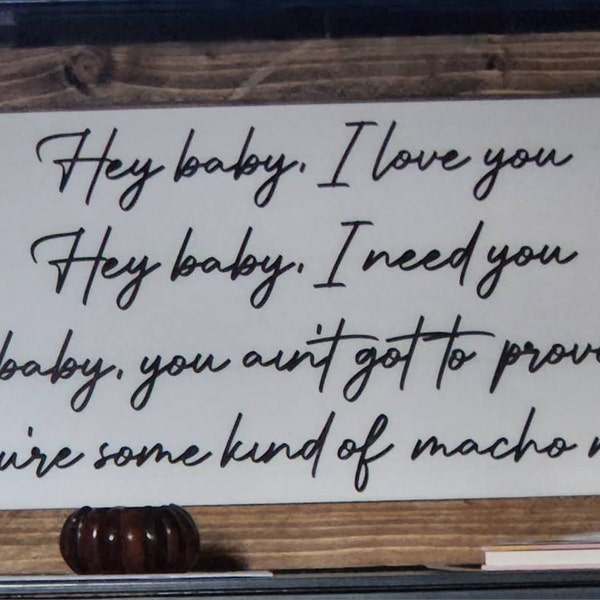 Hey baby, I love you
Hey baby, I need you
baby, you ain't got to prov
u're some kind of macho